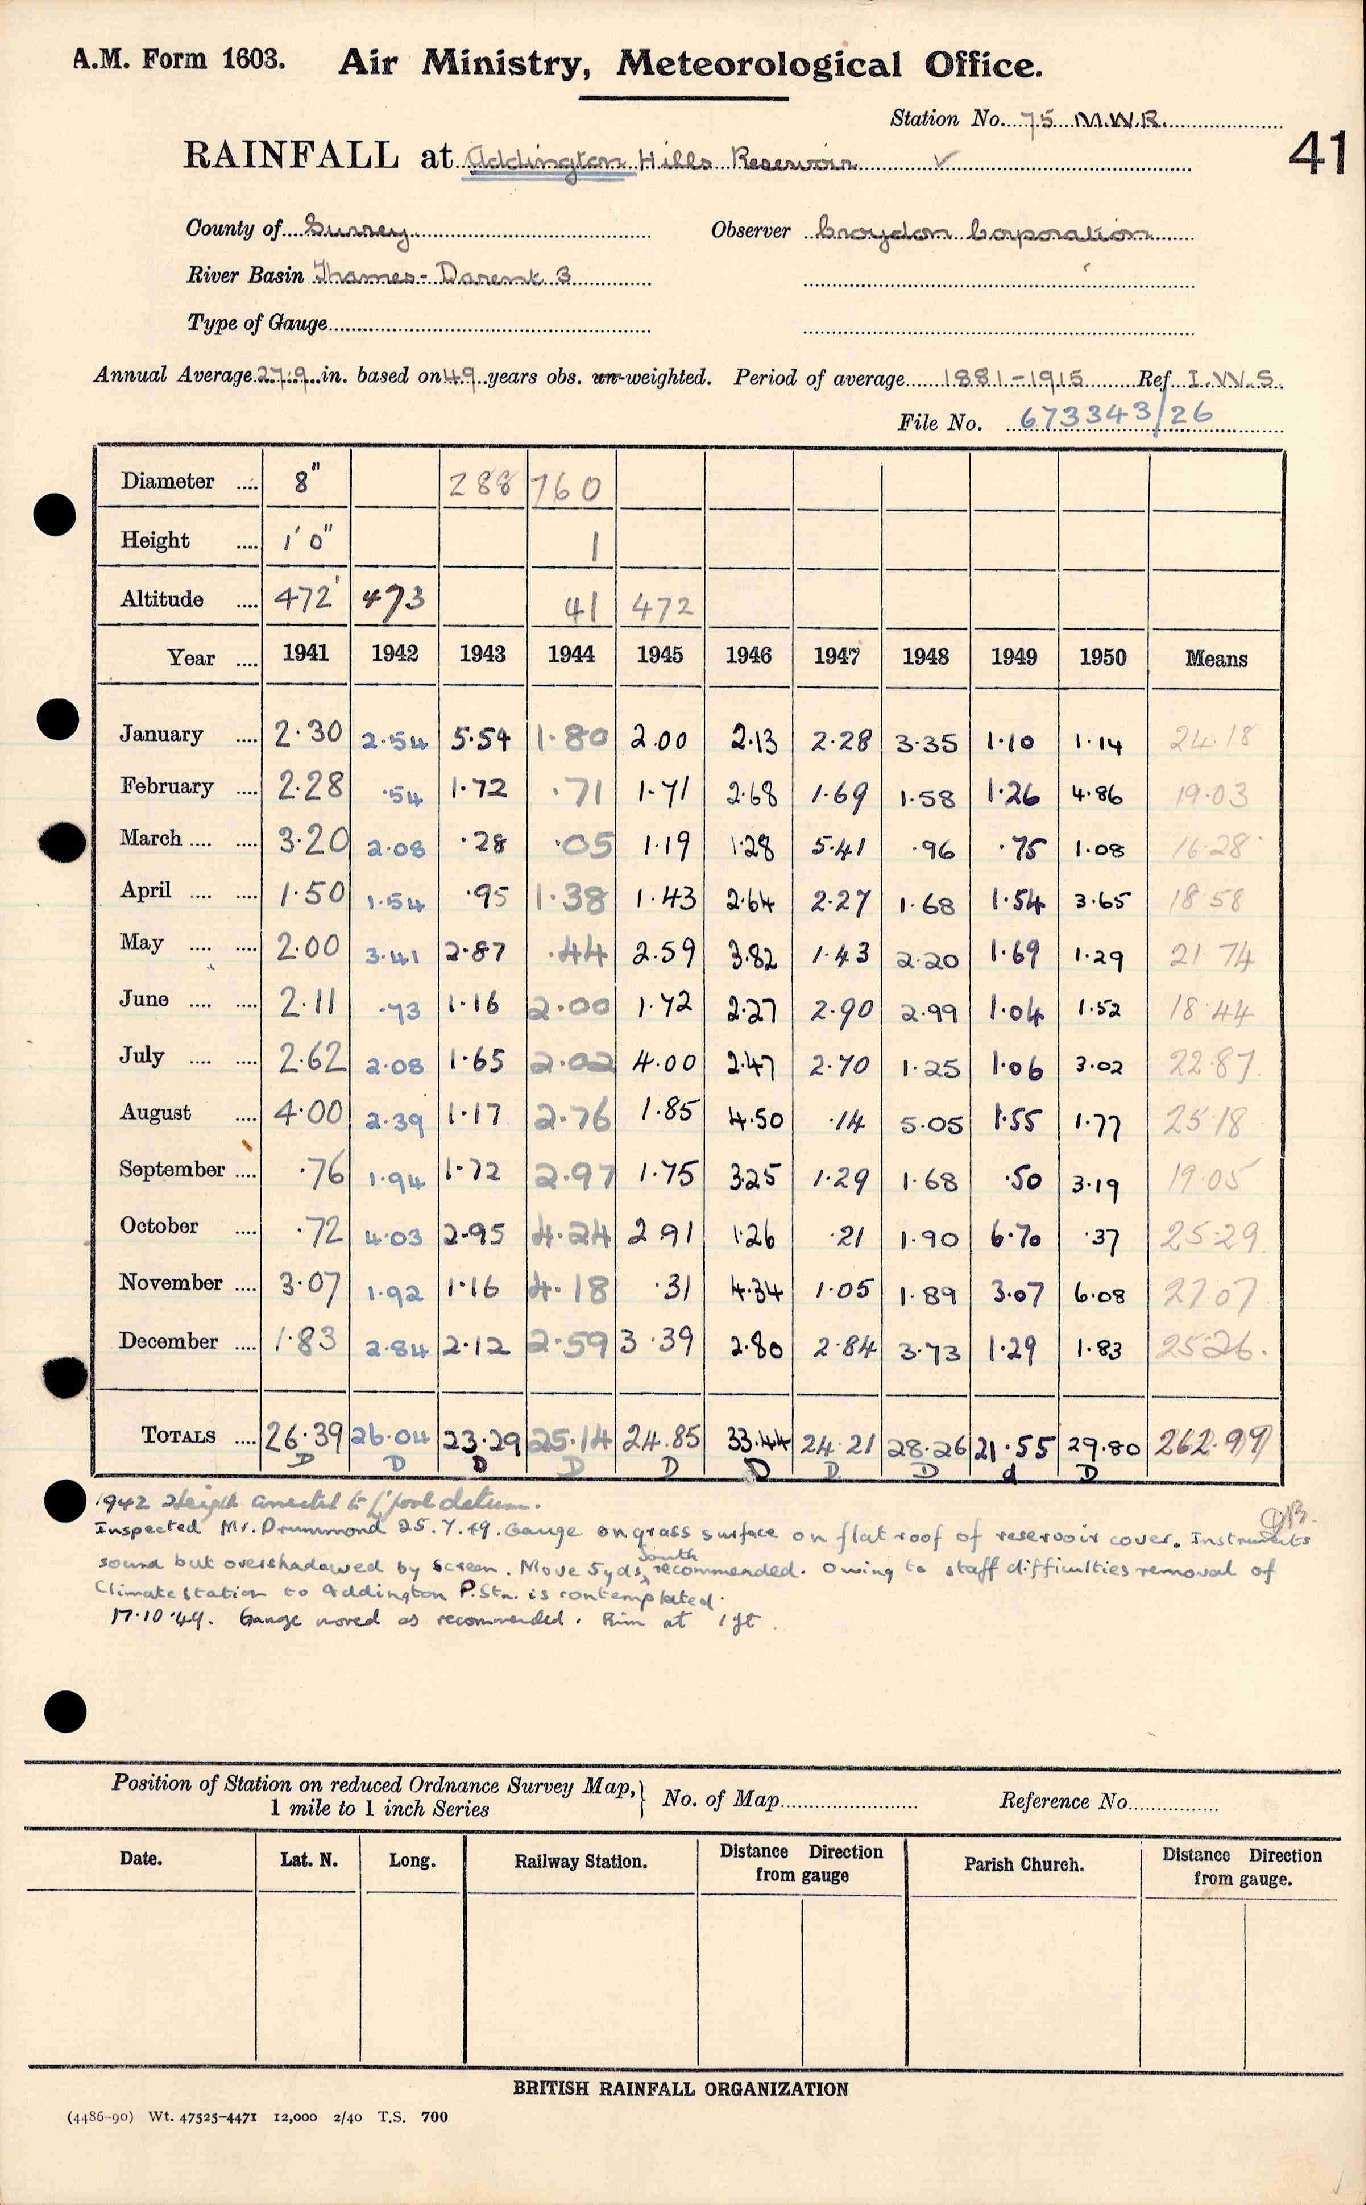 A.M. Form 1603. Air Ministry, Meteorological Office.
Station No. 75 M.W.R.
41
RAINFALL at Addington Hills Reservoir ✓
County of Surrey Observer Croydon Corporation
River Basin Thames - Darent 3
Type of Gauge
Annual Average 27.9 in. based on 49 years obs. un-weighted. Period of average 1881-1915 Ref I.W.S.
File No. 673343/26
Diameter .... 8" 288 760
Height .... 1' 0" 1
Altitude .... 472' 473 41 472
Year .... 1941 1942 1943 1944 1945 1946 1947 1948 1949 1950 Means
January .... 2.30 2.54 5.54 1.80 2.00 2.13 2.28 3.35 1.10 1.14 24.18
February .... 2.28 .54 1.72 .71 1.71 2.68 1.69 1.58 1.26 4.86 19.03
March .... .... 3.20 2.08 .28 .05 1.19 1.28 5.41 .96 .75 1.08 16.28
April .... .... 1.50 1.54 .95 1.38 1.43 2.64 2.27 1.68 1.54 3.65 18.58
May .... .... 2.00 3.41 2.87 .44 2.59 3.82 1.43 2.20 1.69 1.29 21.74
June .... .... 2.11 .73 1.16 2.00 1.72 2.27 2.90 2.99 1.04 1.52 18.44
July .... .... 2.62 2.08 1.65 2.02 4.00 2.47 2.70 1.25 1.06 3.02 22.87
August .... 4.00 2.39 1.17 2.76 1.85 4.50 .14 5.05 1.55 1.77 25.18
September .... .76 1.94 1.72 2.97 1.75 3.25 1.29 1.68 .50 3.19 19.05
October .... .72 4.03 2.95 4.24 2.91 1.26 .21 1.90 6.70 .37 25.29
November .... 3.07 1.92 1.16 4.18 .31 4.34 1.05 1.89 3.07 6.08 27.07
December .... 1.83 2.84 2.12 2.59 3.39 2.80 2.84 3.73 1.29 1.83 25.26.
TOTALS .... 26.39 26.04 23.29 25.14 24.85 33.44 24.21 28.26 21.55 29.80 262.97
D D D D D D D D d D
1942 Height corrected to L'pool datum.
Inspected Mr. Drummond 25.7.49. Gauge on grass surface on flat roof of reservoir cover. Instruments
sound but overshadowed by screen. Move 5yds South recommended. Owing to staff difficulties removal of
Climate station to Addington P.Stn. is contemplated.
17.10.49. Gauge moved as recommended. Rim at 1ft.
Position of Station on reduced Ordnance Survey Map, 1 mile to 1 inch Series } No. of Map Reference No.
Date. Lat. N. Long. Railway Station. Distance Direction from gauge Parish Church. Distance Direction from gauge.
BRITISH RAINFALL ORGANIZATION
(4486-90) Wt. 47525-4471 12,000 2/40 T.S. 700